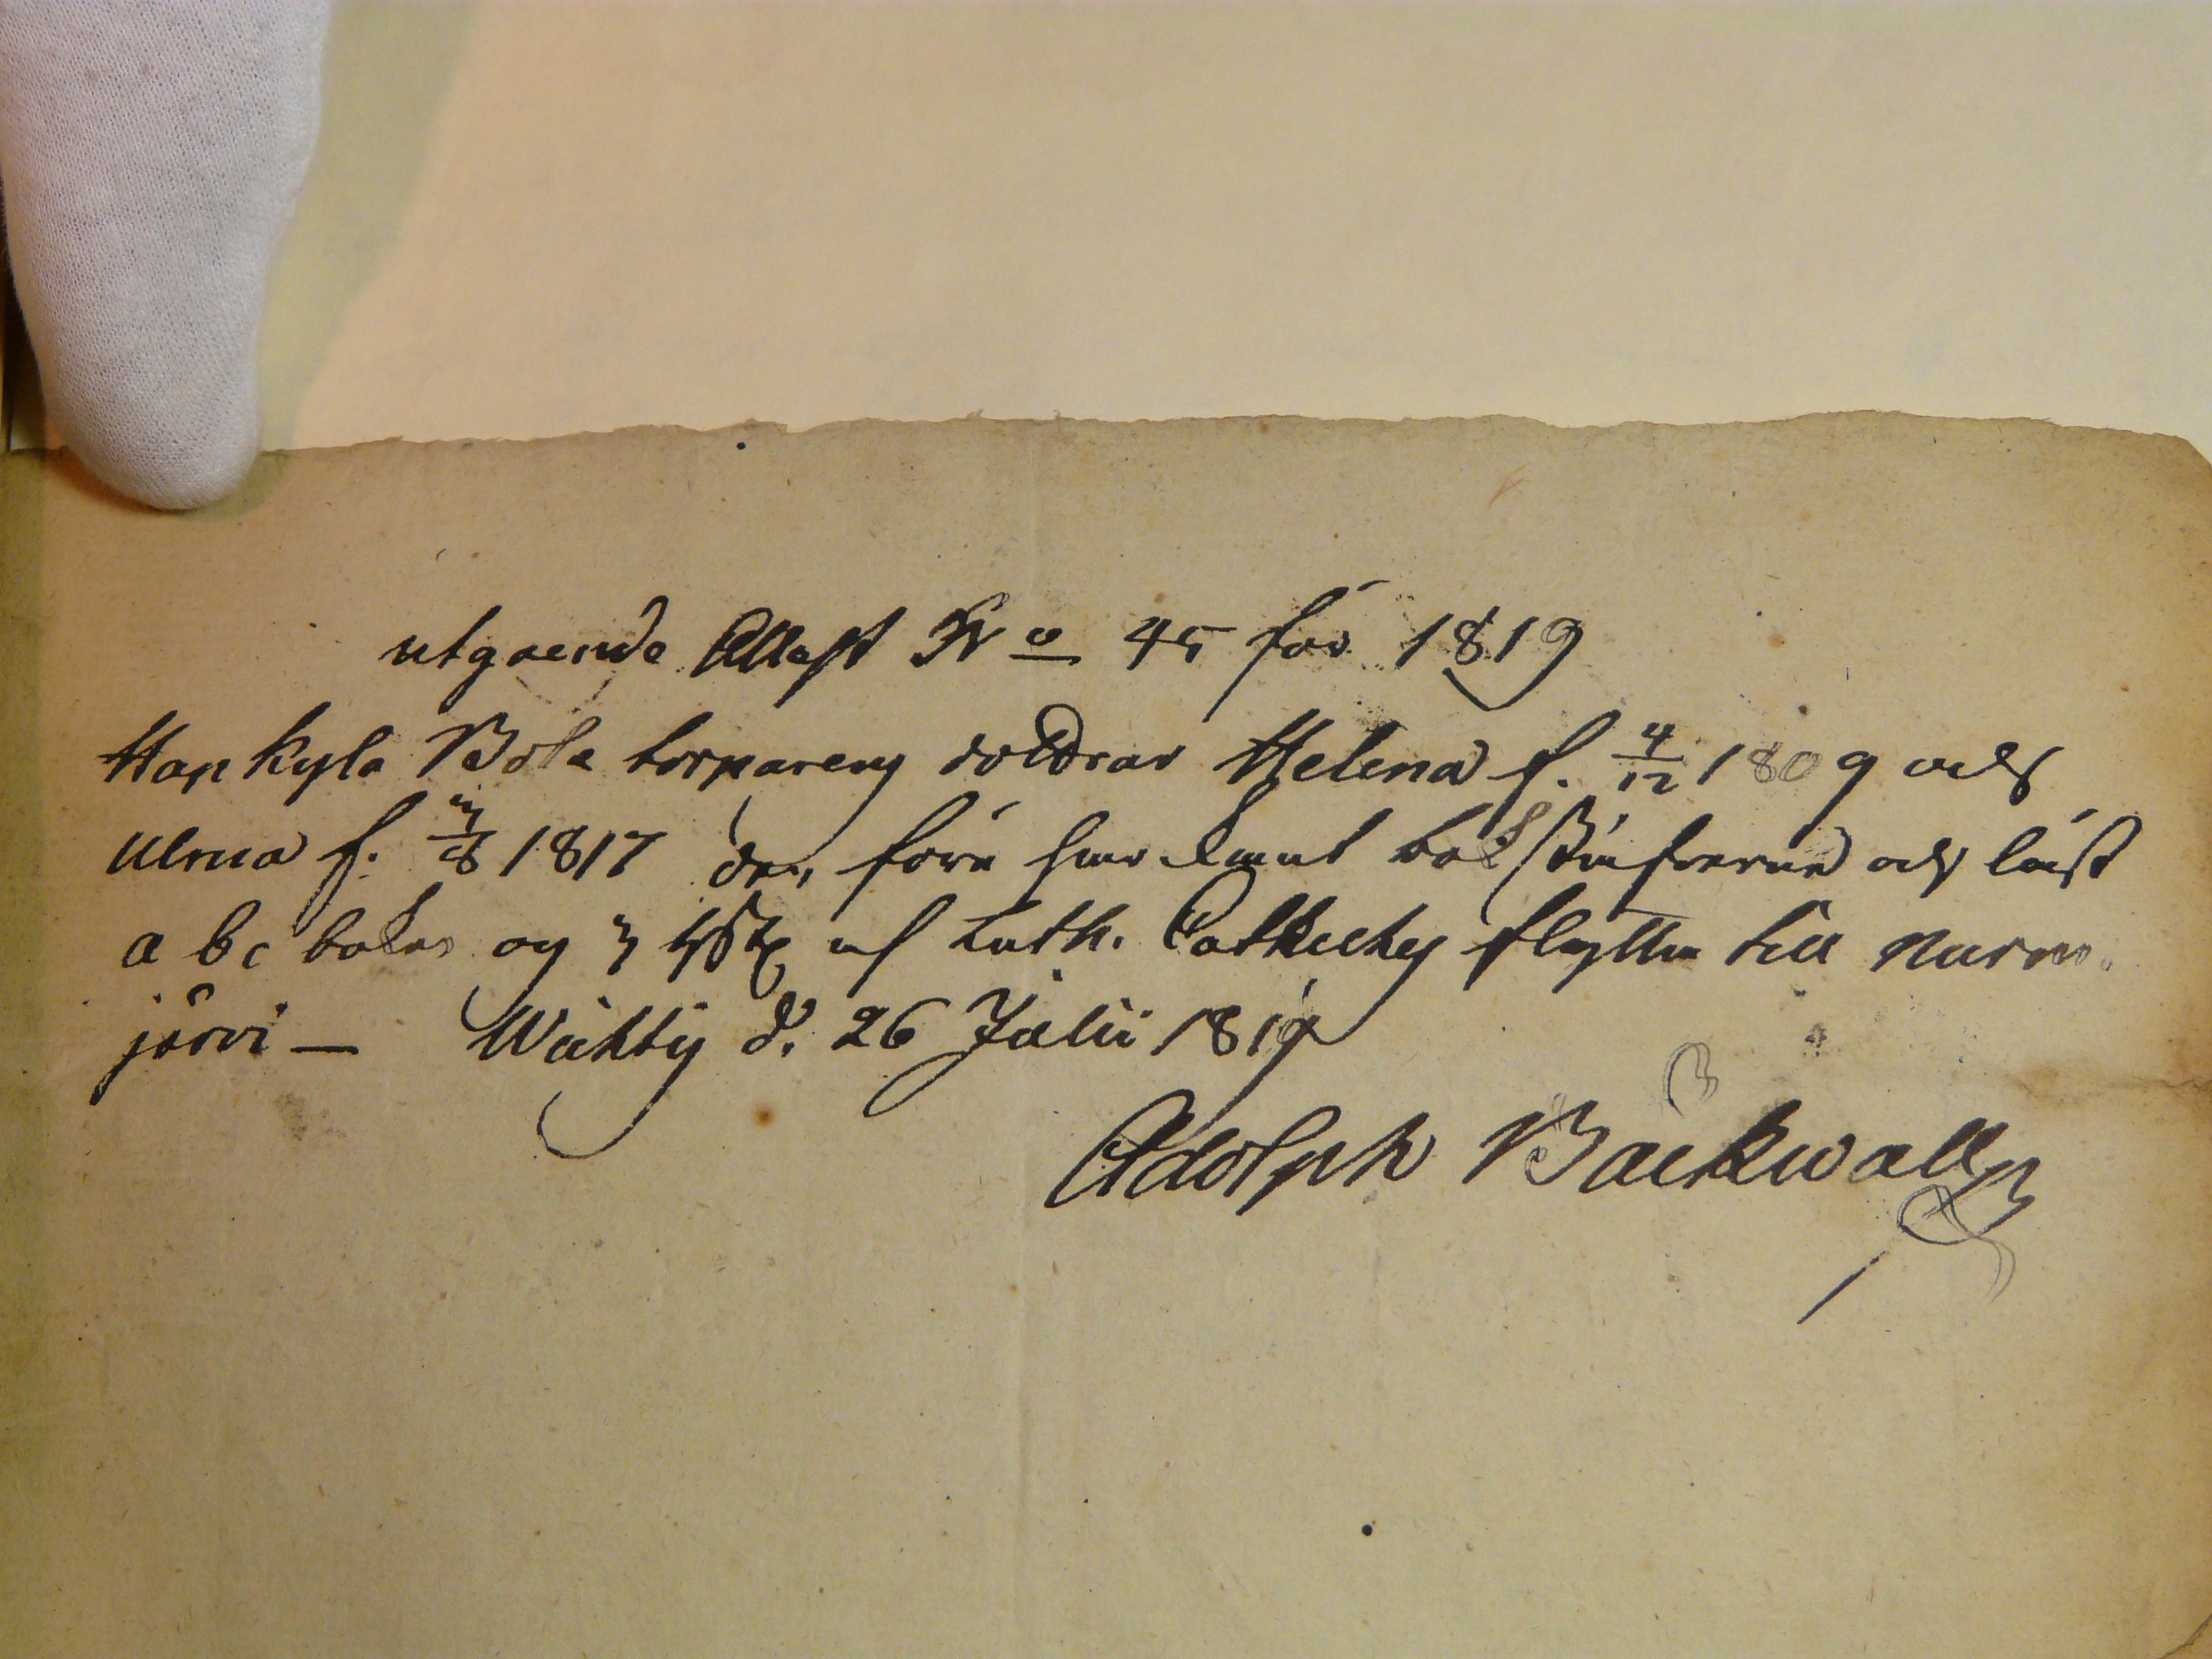 utgaende Attest No 45 för 1819
Hapkyla Böle torparens döttrar Helena f. 4/12 1809 och
Ulrica f. 3/8 1817 den förra har lärnt bokstäfverna och läst
a b c boken og af Luth. Catheches flytta till Nurm.
järvi — Wichtis d. 26 Julii 1819
Adolph Bäckwall